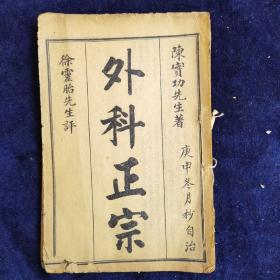 陳實功先生著
庚申冬月秒自治
外科正宗
徐靈胎先生評